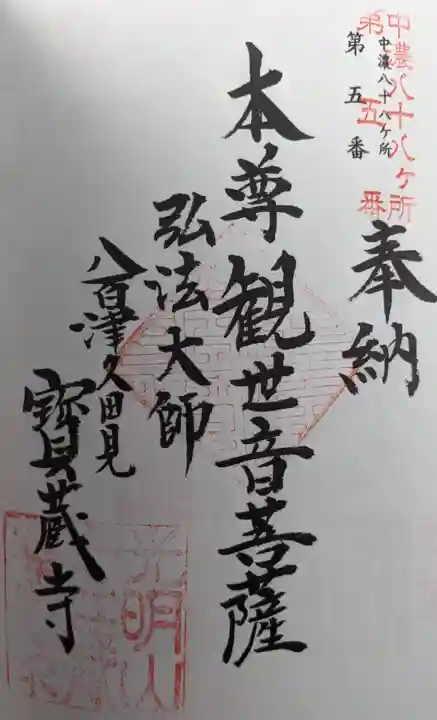 中濃八十八ケ所
第五番
中濃八十八ケ所
第五番
奉納
本尊観世音菩薩
弘法大師
八百津久田見
寳蔵寺